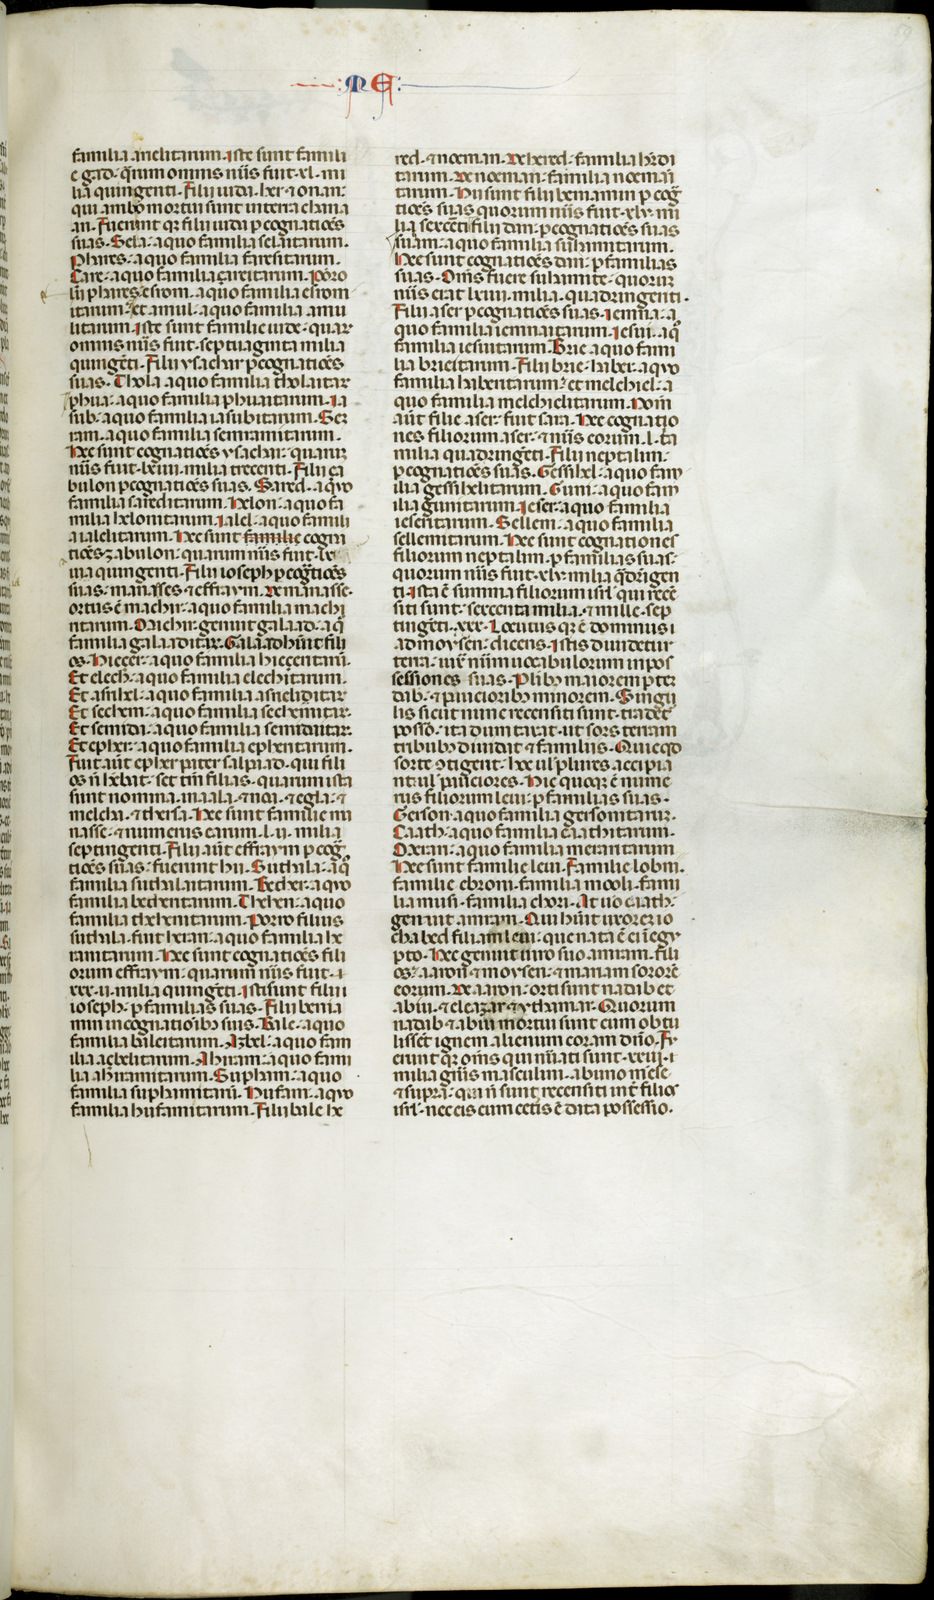 ME
familia arielitarum. Iste sunt famili
e gad. quarum omnis nūs fuit .xl. mi
lia quingenti. Filii iuda. her ⁊ onan.
qui ambo mortui sunt in terra chana
an. Fuerunt qꝫ filii iuda p cognatiōes
suas. Sela. a quo familia selaitarum.
Phares. a quo familia faresitarum.
Care. a quo familia çareitarum. Porro
lii phares. esrom. a quo familia esrom
itarum. et amul. a quo familia amu
litarum. Iste sunt familie iude. quar
omnis nūs fuit. septuaginta milia
quingēti. Filii ysachar p cognatiōes
suas. Thola a quo familia tholaitar
phua. a quo familia phuaitarum. Ia
sub. a quo familia iasubitarum. Sem
ram. a quo familia semramitarum.
Hec sunt cognatiōes ysachar. quarum
nūs fuit. lxiiii. milia trecenti. Filii ça
bulon p cognatiōes suas. Sared. a quo
familia sareditarum. Helon. a quo fa
milia helonitarum. Ialel. a quo famili
a ialelitarum. Hec sunt familie cogna
tiōes zabulon. quarum nūs fuit. lx
milia quingenti. Filii ioseph p cogtiōes
suas. manasses ⁊ effraym. De manasse.
ortus ē machir. a quo familia machi
ritarum. Machir. genuit galaad. a q̊
familia galaaditar. Galaad hūit fili
os. Hieçer. a quo familia hieçeritarū.
Et elech. a quo familia elechitarum.
Et asrihel. a quo familia asrielitar
Et sechem. a quo familia sechemitar.
Et semida. a quo familia semidaitar.
Et epher. a quo familia epheritarum.
Fuit aūt epher pater salphaad. qui fili
os nō hēbat. set tm̄ filias. quarum ista
sunt nomina. maala. ⁊ noa. ⁊ egla. ⁊
melcha. ⁊ thersa. Hec sunt familie ma
nasse. ⁊ numerus earum. l. ii. milia
septingenti. Filii aūt effraym p cog
tiōes suas. fuerunt hii. Suthala. a q̊
familia suthalaitarum. Becher. a quo
familia becheritarum. Thehen. a quo
familia thehenitarum. Porro filius
suthala. fuit heran. a quo familia he
ranitarum. Hec sunt cognatiōes fili
orum effraym. quarum nūs fuit.
xxx. ii. milia quingēti. Isti sunt filii
ioseph. p familias suas. Filii benia
min in cognatioībꝫ suis. Bale. a quo
familia baleitarum. Azbel. a quo fam
ilia azbelitarum. Ahiram. a quo fami
lia ahiramitarum. Supham. a quo
familia suphamitarū. Hufam. a quo
familia hufamitarum. Filii bale he
red. ⁊ noeman. De hered. familia heredi
tarum. De noeman. familia noeman
tarum. Hii sunt filii beniamin p cog
tiōes suas quorum nūs fuit. xlv. mi
lia sexcēti. Filii dan. p cognatiōes suas
suam. a quo familia suhamitarum.
Hec sunt cognatiōes dan. p familias
suas. Oms fuere suhamite. quorum
nūs erat lxiiii. milia. quadringenti.
Filii aser p cognatiōes suas. Iemna. a
quo familia iemnaitarum. Iesui. a q̊
familia iesuitarum. Brie a quo fami
lia brieitarum. Filii brie. haber. a quo
familia haberitarum. et melchiel. a
quo familia melchielitarum. Nom
aūt filie aser. fuit sara. Hec cognatio
nes filiorum aser. ⁊ nūs eorum. l. ta
milia quadringēti. Filii neptalim.
p cognatiōes suas. Gessihel. a quo fam
ilia gessihelitarum. Guni. a quo fam
ilia gunitarum. Ieser. a quo familia
ieseritarum. Sellem. a quo familia
sellemitarum. Hec sunt cognationes
filiorum neptalim. p familias suas.
quorum nūs fuit. xlv. milia q̄dringen
ti. Ista ē summa filiorum isrl. qui recē
siti sunt. sexcenta milia. ⁊ mille. sep
tingēti. xxx. Locutus qꝫ ē dominus
ad moysen. dicens. Istis diuidetur
terra. iuxᵃ nūm uocabulorum in pos
sessiones suas. Pluribꝫ maiorem p̄ter
dab. ⁊ paucioribꝫ minorem. Singu
lis sicut nunc recensiti sunt. tradet
possō. ita dumtaxat. ut sors terram
tribubꝫ diuidat ⁊ familiis. Quicqd
sorte ꝯtigerit. hec ul' plures accipia
nt. ul' pauciores. Hic quoqꝫ ē nume
rus filiorum leui. p familias suas.
Gerson. a quo familia gersonitarum.
Caath. a quo familia caathitarum.
Merari. a quo familia meraritarum
Hec sunt familie leui. Familie lobni.
familie ebroni. familia mooli. fami
lia musi. familia chori. At uo caath.
genuit amram. Qui hūit uxorem io
chabed filiam leui. que nata ē ei ī egy
pto. Hec genuit uiro suo amram. fili
os. aaron ⁊ moysen. ⁊ mariam sororē
eorum. De aaron. orti sunt nadab et
abiu. ⁊ eleazar. ⁊ ythamar. Quorum
nadab ⁊ abiu mortui sunt cum obtu
lissēt ignem alienum coram dn̄o. Fu
erunt qꝫ oms qui nūati sunt. xxiii.
milia gn̄is masculini. ab uno mēse
⁊ supra. quia nō sunt recensiti int' filios
isrl. nec eis cum ceteris ē data possessio.